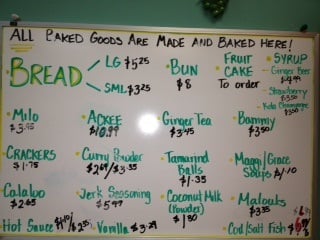 ALL BAKED GOODS ARE MADE AND BAKED HERE!
BREAD
LG $5.25
SML $3.25
BUN
$8
FRUIT
CAKE
To order
SYRUP
Ginger Beer
$4.99
Strawberry
$3.50
Kola Champagne
$3.50
Milo
$3.95
ACKEE
$10.99
Ginger Tea
$3.45
Bammy
$3.50
CRACKERS
$1.75
Curry Powder
$2.69/$3.55
Tamarind
Balls
$1.35
Maggi/Grace
Soups $1.10
Calaloo
$2.65
Jerk Seasoning
$5.99
Coconut Milk
(Powder)
$1.80
Malouts
$3.35
Hot Sauce
Vanilla $3.29
Cod/Salt Fish